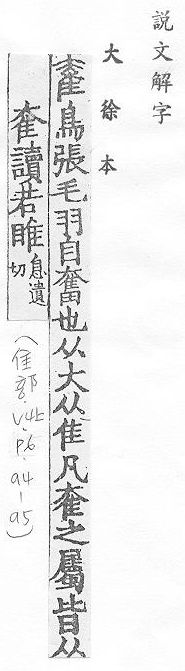 說文解字
大徐本
奞鳥張毛羽自奮也从大从隹凡奞之屬皆从
奞讀若睢息遺切
(隹部.V4上.P6.94-95)